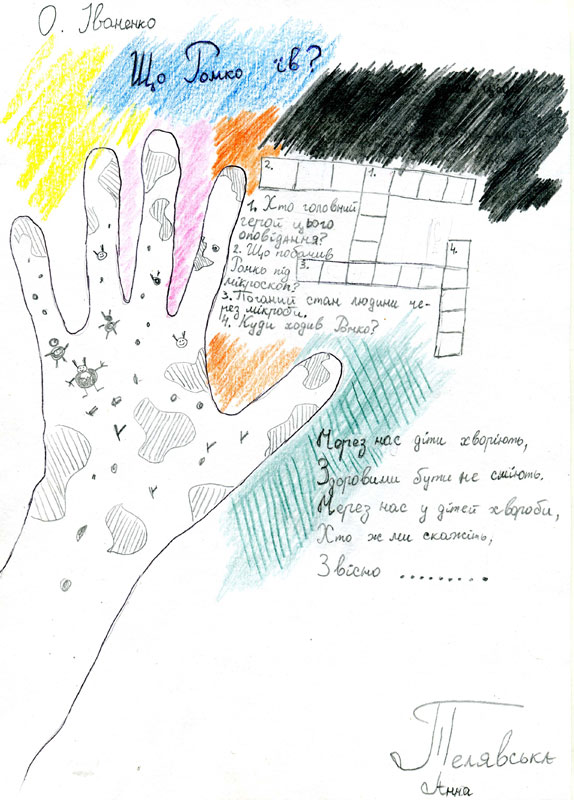 О. Іваненко
Що Ромко їв?
2.
1.
1. Хто головний
герой цього
оповідання?
2. Що побачив
Ромко під
мікроскоп?
3.
4.
3. Поганий стан людини че-
рез мікроби.
4. Куди ходив Ромко?
Через нас діти хворіють,
Здоровими бути не сміють.
Через нас у дітей хвороби,
Хто ж ми скажіть,
Звісно ..........
Телявська
Анна